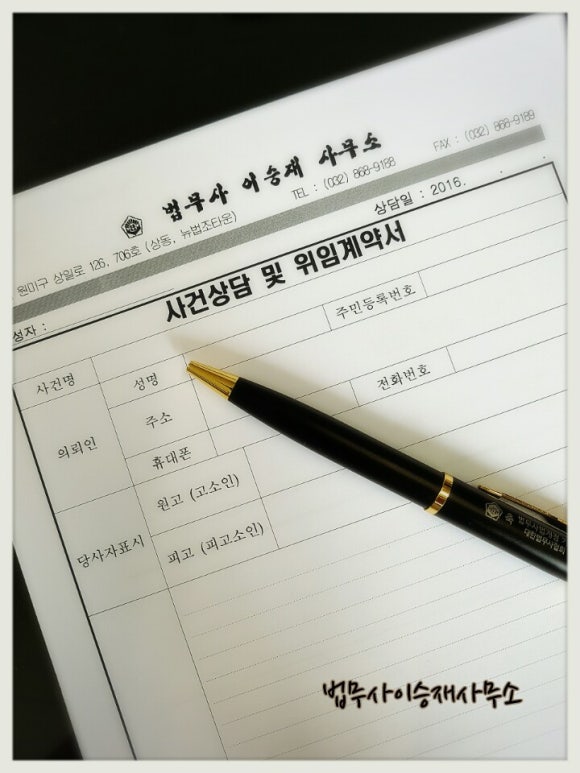 법무사 이승재 사무소
원미구 상일로 126, 706호 (상동, 뉴법조타운) TEL : (032) 868-9188 FAX : (032) 868-9189
상담일 : 2016. . .
성자 :
사건상담 및 위임계약서
사건명
의뢰인 성명 주민등록번호
주소
휴대폰 전화번호
당사자표시 원고 (고소인)
피고 (피고소인)
대한법무사협회
법무사이승재사무소